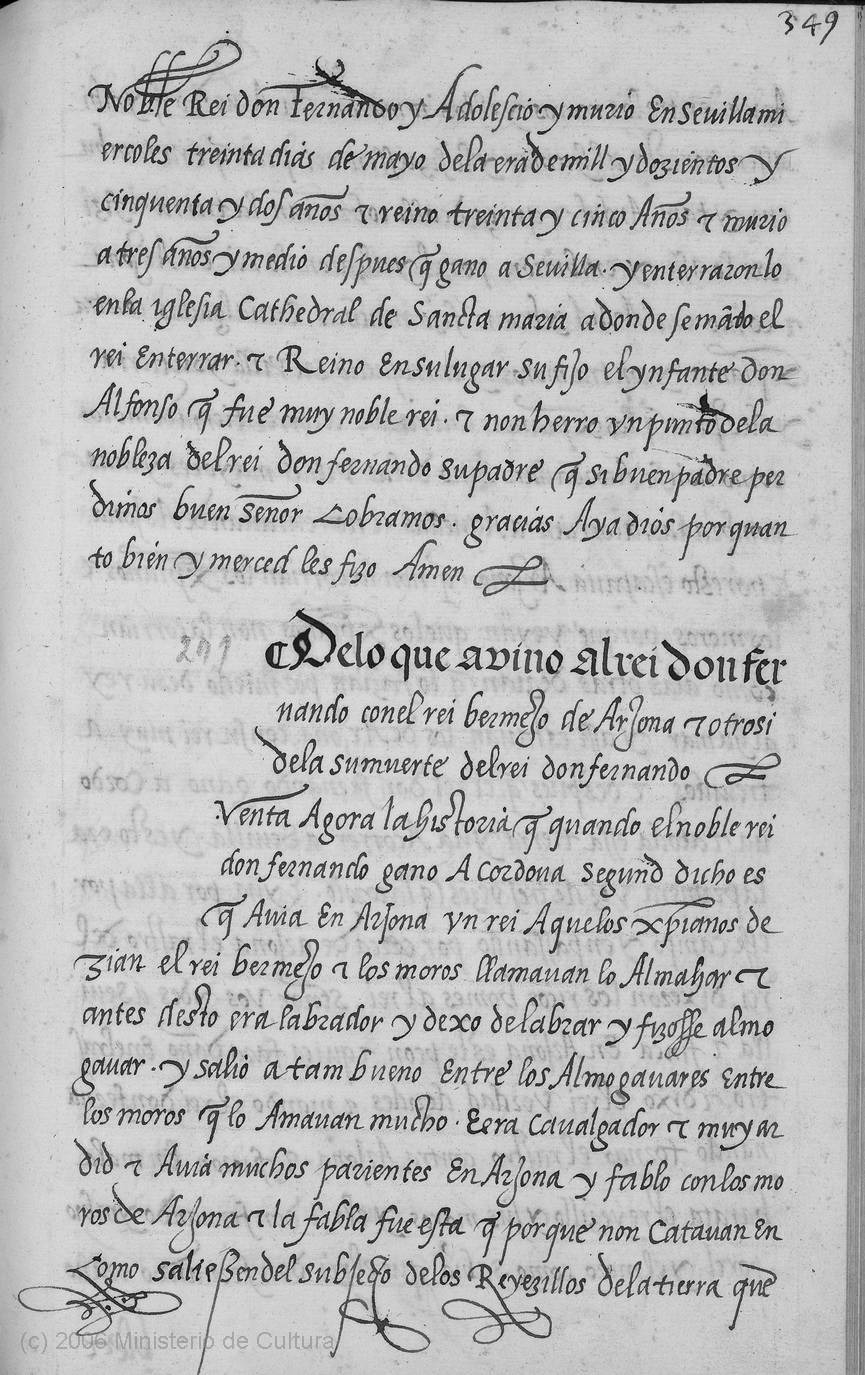 349
Noble Rei don fernando y Adolescio y murio En Sevilla mi
ercoles treinta dias de mayo dela era de mill y dozientos y
cinquenta y dos años τ reino treinta y cinco Años τ murio
a tres años y medio despues q̃ gano a Sevilla. y enterraron lo
en la iglesia Cathedral de Sancta maria a donde se mãdo el
rei Enterrar. τ Reino En su lugar su fijo el ynfante don
Alfonso q̃ fue muy noble rei. τ non herro vn punto dela
nobleza del rei don fernando su padre q̃ si buen padre per
dimos buen señor Cobramos. gracias Aya dios por quan
to bien y merced les fizo Amen
209
Delo que avino al rei don fer
nando con el rei bermejo de Arjona τ otrosi
dela su muerte del rei don fernando
Venta Agora la historia q̃ quando el noble rei
don fernando gano A Cordova segund dicho es
q̃ Auia En Arjona vn rei A quelos xp̃ianos de
zian el rei bermejo τ los moros llamauan lo Almahar τ
antes desto era labrador y dexo de labrar y fizosse almo
gauar. y salio a tam bueno Entre los Almogauares Entre
los moros q̃ lo Amauan mucho. E era caualgador τ muy ar
did τ Auia muchos parientes En Arjona y fablo con los mo
ros de Arjona τ la fabla fue esta q̃ por que non Catauan En
Como saließen del subjecto delos Reyezillos dela tierra que
(c) 2006 Ministerio de Cultura